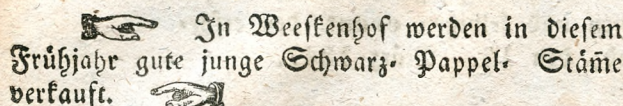 In Weeskenhof werden in diesem
Frühjahr gute junge Schwarz- Pappel- Stäm̄e
verkauft.